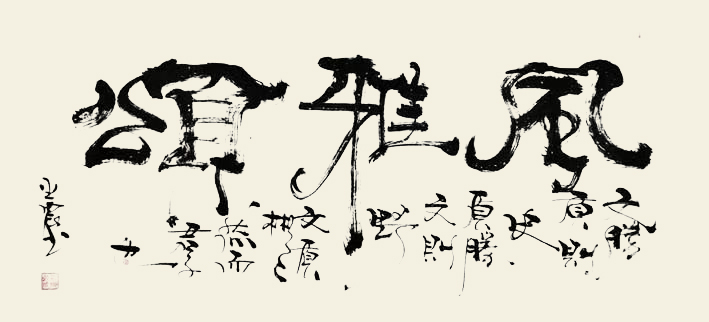 風雅頌
文勝
質則
史
質勝
文則
野
文質
彬彬
然而
君子